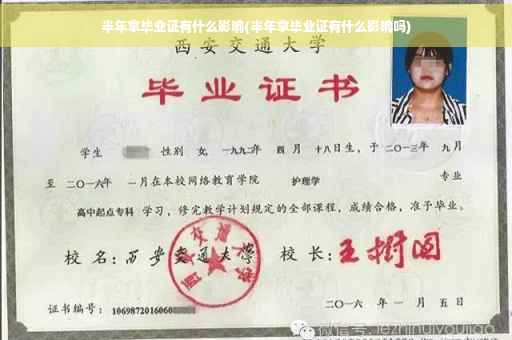 半年拿毕业证有什么影响(半年拿毕业证有什么影响吗)
西安交通大学
毕业证书
学生 性别 女, 一九九二年 四月 十八日生, 于二〇一三年 九月
至 二〇一六年 一月在本校网络教育学院 护理学 专业
高中起点专科 学习, 修完教学计划规定的全部课程, 成绩合格, 准予毕业。
校 名: 西安交通大学 校 长: 王树国
西安交通大学
证书编号: 1069872016060
二〇一六 年 一 月 五 日
微信号: jezhihuiyoujiao